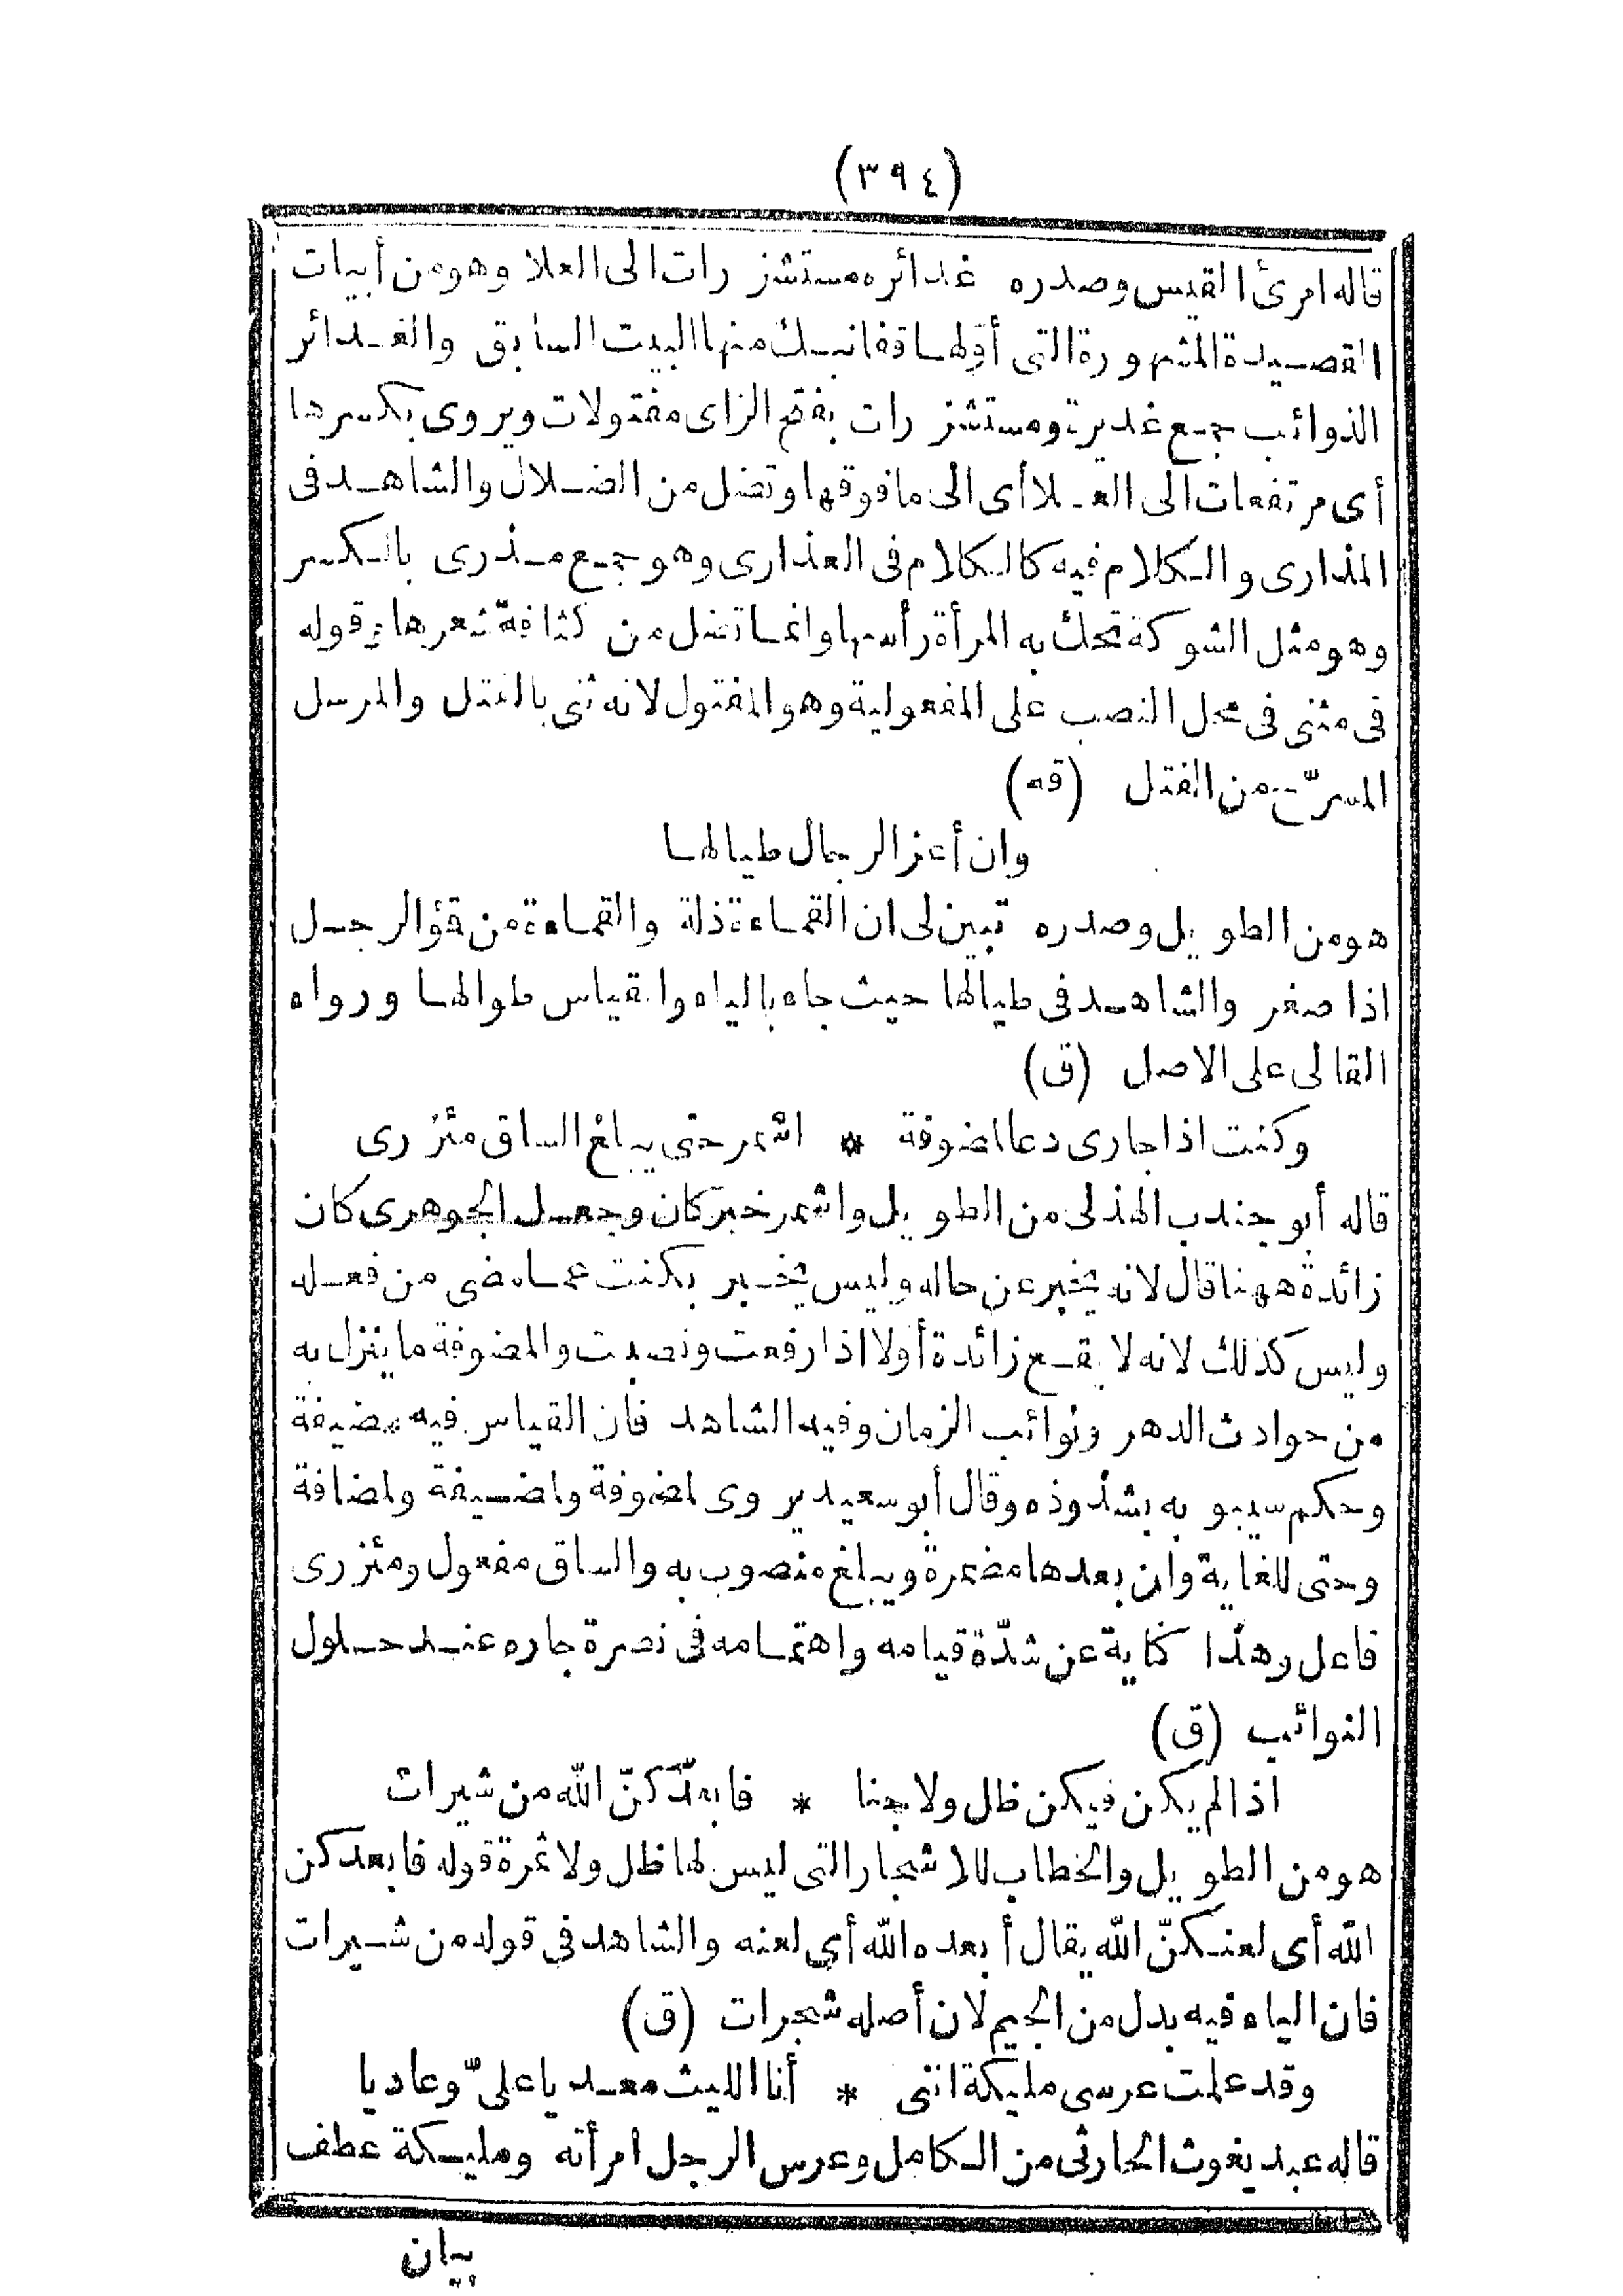 (٣٩٤)
قاله امرئ القيس وصدره غدائره مستشزرات الى العلا وهو من أبيات
القصيدة المشهورة التى أوّلها قفا نبك منها البيت السابق والغدائر
الذوائب جمع غديرة ومستشزرات بفتح الزاى مفتولات ويروى بكسرها
أى مرتفعات الى العلا أى الى ما فوقها وتضل من الضلال والشاهد فى
المذارى والكلام فيه كالكلام فى العذارى وهو جمع مذرى بالكسر
وهو مثل الشوكة تحك به المرأة رأسها وانما تضل من كثافة شعرها وقوله
فى مثنى فى محل النصب على المفعولية وهو المفتول لانه ثنى بالفتل والمرسل
المسرّح من الفتل (قه)
وان أعز الرجال طيالها
هو من الطويل وصدره تبين لى ان القماءة ذلة والقماءة من قؤ الرجل
اذا صغر والشاهد فى طيالها حيث جاء بالياء والقياس طوالها ورواه
القالى على الاصل (ق)
وكنت اذا جارى دعا لمضوفة * اشمر حتى يبلغ الساق مئزرى
قاله أبو جندب الهذلى من الطويل واشمر خبر كان وجعل الجوهرى كان
زائدة ههنا قال لانه يخبر عن حاله وليس يخبر بكنت عما مضى من فعله
وليس كذلك لانه لا يقع زائدة أولا اذا رفعت ونصبت والمضوفة ما ينزل به
من حوادث الدهر ونوائب الزمان وفيه الشاهد فان القياس فيه مضيفة
وحكم سيبويه بشذوذه وقال أبو سعيد يروى لمضوفة ولمضيفة ولمضافة
وحتى للغاية وان بعدها مضمرة ويبلغ منصوب به والساق مفعول ومئزرى
فاعل وهذا كناية عن شدّة قيامه واهتمامه فى نصرة جاره عند حلول
النوائب (ق)
اذا لم يكن فيكن ظل ولا جنا * فابعدكنّ الله من شيرات
هو من الطويل والخطاب للاشجار التى ليس لها ظل ولا ثمرة قوله فابعدكن
الله أى لعنكنّ الله يقال أبعده الله أى لعنه والشاهد فى قوله من شيرات
فان الياء فيه بدل من الجيم لان أصله شجرات (ق)
وقد علمت عرسى مليكة اننى * أنا الليث معديا علىّ وعاديا
قاله عبد يغوث الحارثى من الكامل وعرس الرجل امرأته ومليكة عطف
بيان